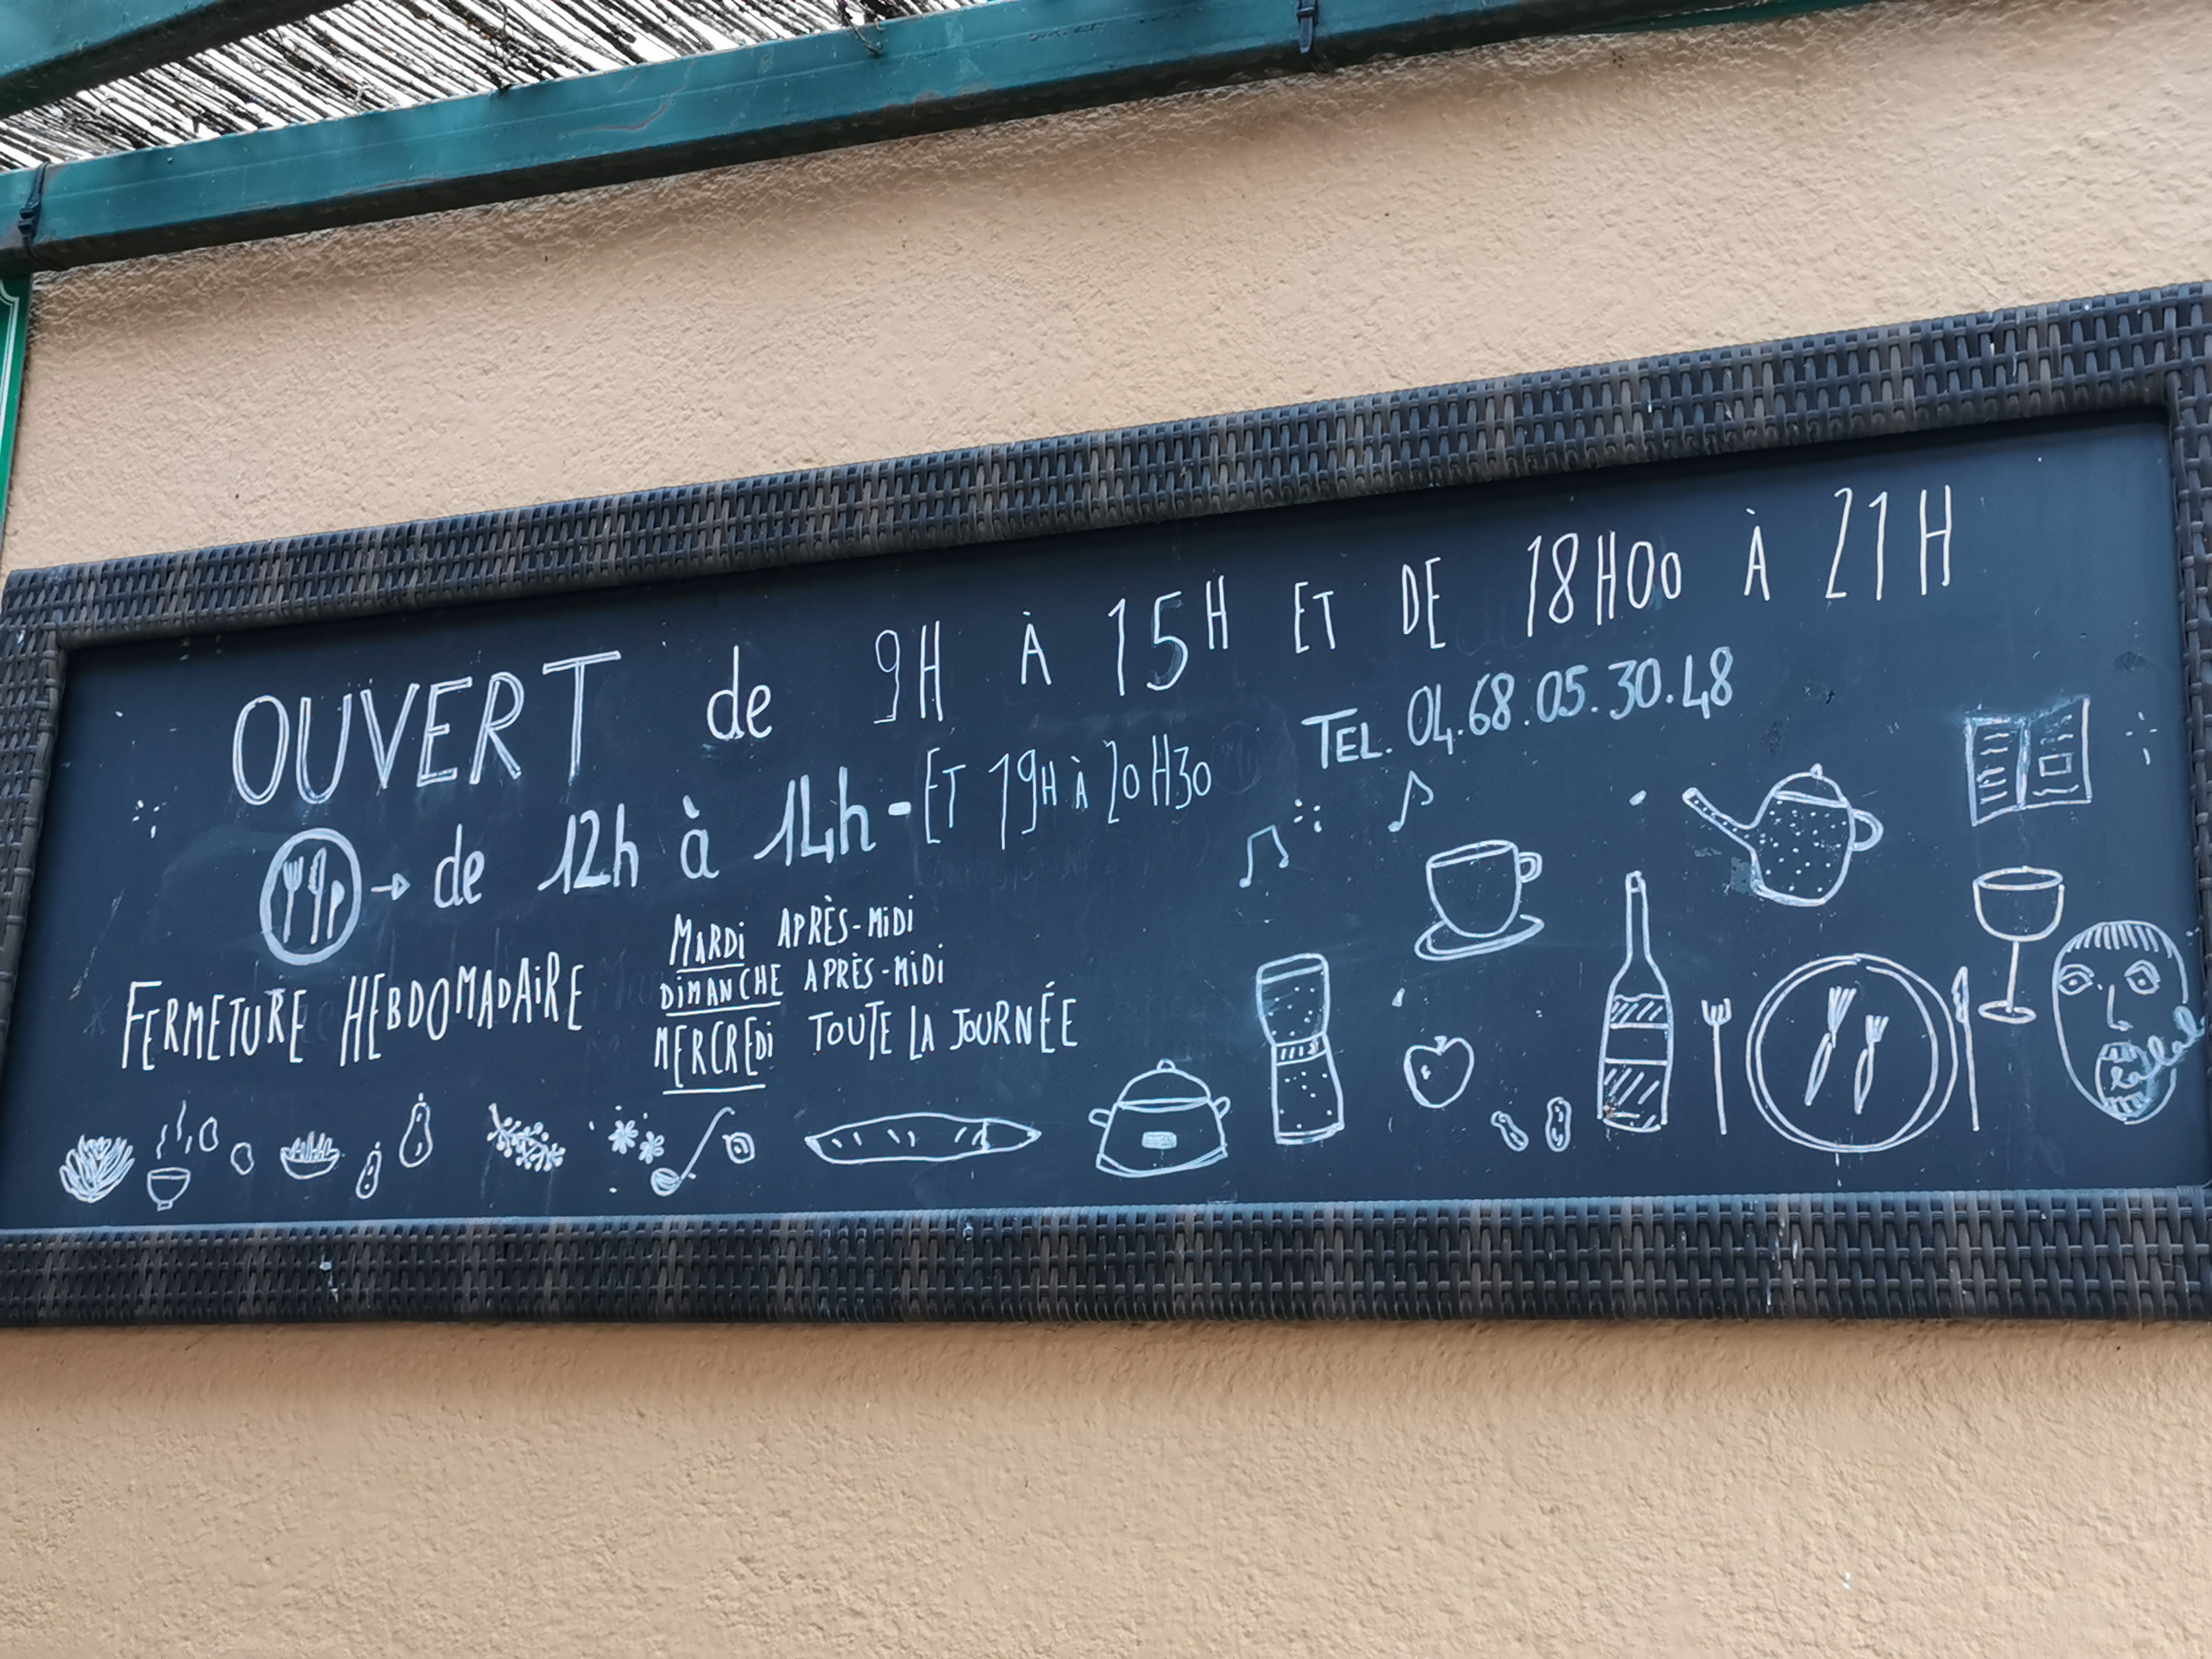 OUVERT de 9H À 15H ET DE 18H00 À 21H
TEL. 04.68.05.30.48
de 12h à 14h - ET 19H À 20H30
FERMETURE HEBDOMADAIRE
MARDI APRÈS-MIDI
DIMANCHE APRÈS-MIDI
MERCREDI TOUTE LA JOURNÉE